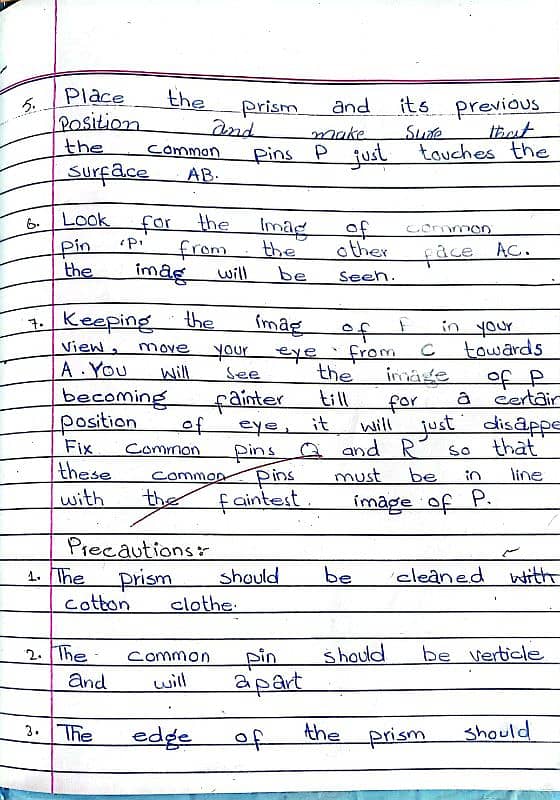 5. Place the prism and its previous
Position and make sure that
the common pins P just touches the
surface AB.
6. Look for the Imag of common
pin 'P' from the other face AC.
the imag will be seen.
7. Keeping the imag of P in your
view, move your eye from C towards
A. You will see the image of P
becoming fainter till for a certain
position of eye, it will just disappe
Fix common pins Q and R so that
these common pins must be in line
with the faintest image of P.
Precautions:-
1. The prism should be cleaned with
cotton clothe.
2. The common pin should be verticle
and will apart
3. The edge of the prism should